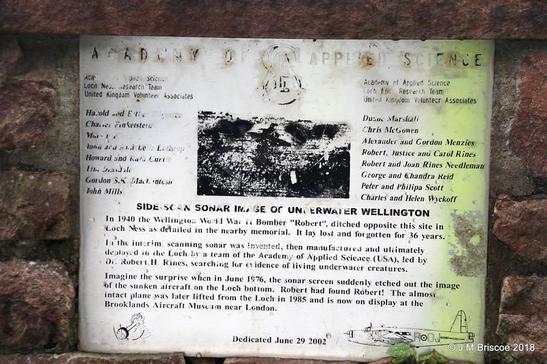 ACADEMY OF APPLIED SCIENCE
Loch Ness Research Team
United Kingdom Volunteer Associates
Academy of Applied Science
Loch Research Team
United Kingdom Volunteer Associates
Harold and
Charles Finkelstein
John and Lothrop
Howard and Ruth Curtis
Gordon S.K. MacKintosh
John Mills
Duane Marshall
Chris McGowen
Alexander and Gordon Menzies
Robert, Justice and Carol Rines
Robert and Joan Rines Needleman
George and Chandra Reid
Peter and Philipa Scott
Charles and Helen Wyckoff
SIDE-SCAN SONAR IMAGE OF UNDERWATER WELLINGTON
In 1940 the Wellington World War II Bomber "Robert", ditched opposite this site in
Loch Ness as detailed in the nearby memorial. It lay lost and forgotten for 36 years.
In the interim, scanning sonar was invented, then manufactured and ultimately
deployed in the Loch by a team of the Academy of Applied Science (USA), led by
Dr. Robert H. Rines, searching for evidence of living underwater creatures.
Imagine the surprise when in June 1976, the sonar screen suddenly etched out the image
of the sunken aircraft on the Loch bottom. Robert had found Robert! The almost
intact plane was later lifted from the Loch in 1985 and is now on display at the
Brooklands Aircraft Museum near London.
Dedicated June 29 2002
© J M Briscoe 2018